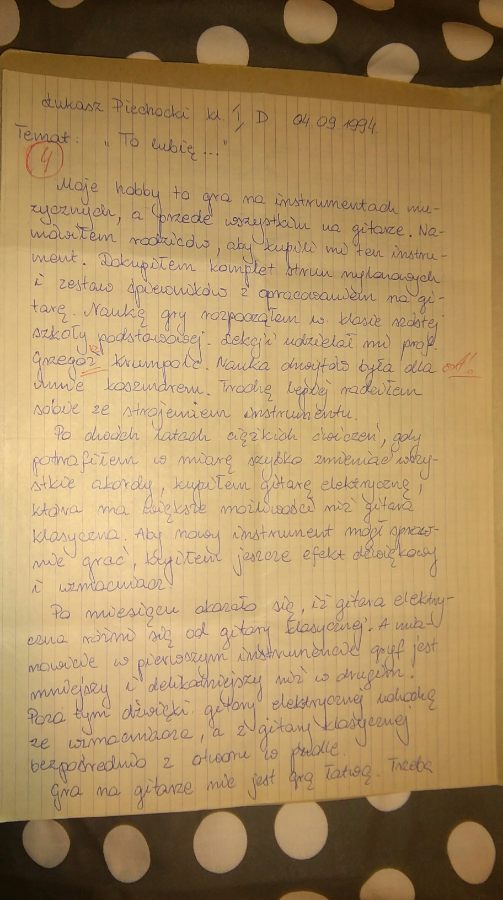 Łukasz Piechocki kl. I D 04.09.1994
Temat: "To lubię..."
4
Moje hobby to gra na instrumentach mu-
zycznych, a przede wszystkim na gitarze. Na-
mówiłem rodziców, aby kupili mi ten instru-
ment. Dokupiłem komplet strun nylonowych
i zestaw śpiewników z opracowaniem na gi-
tarę. Naukę gry rozpocząłem w klasie szóstej
szkoły podstawowej. Lekcji udzielał mi prof.
Grzegorz Krumpolc. Nauka chwytów była dla
mnie koszmarem. Trochę lepiej radziłem
sobie ze strojeniem instrumentu.
Po dwóch latach ciężkich ćwiczeń, gdy
potrafiłem w miarę szybko zmieniać wszy-
stkie akordy, kupiłem gitarę elektryczną,
która ma większe możliwości niż gitara
klasyczna. Aby nowy instrument mógł spraw-
nie grać, kupiłem jeszcze efekt dźwiękowy
i wzmacniacz.
Po miesiącu okazało się, iż gitara elektry-
czna różni się od gitary klasycznej. A mia-
nowicie w pierwszym instrumencie gryf jest
mniejszy i delikatniejszy niż w drugim.
Poza tym dźwięki gitary elektrycznej uchodzą
ze wzmacniacza, a z gitary klasycznej
bezpośrednio z otworu w pudle.
Gra na gitarze nie jest grą łatwą. Trzeba